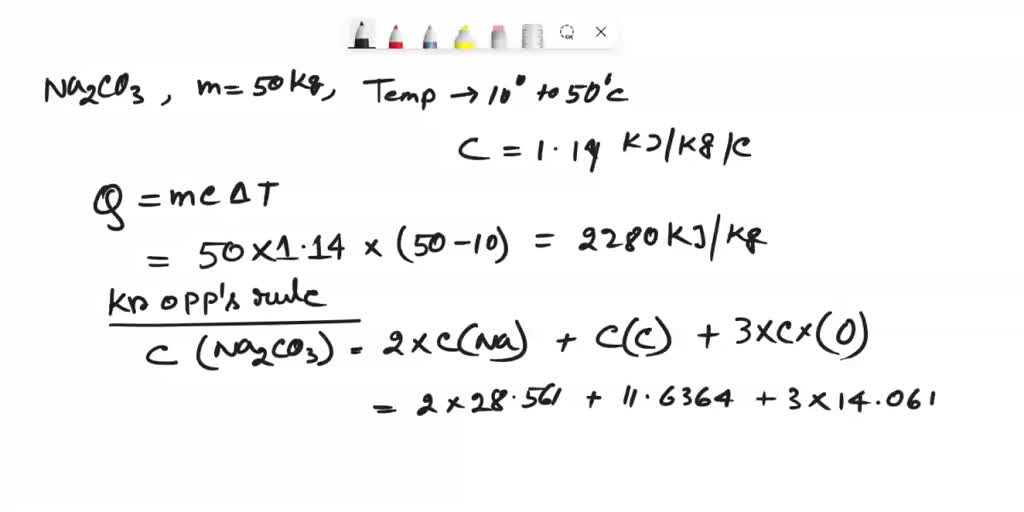 Na₂CO₃, m = 50 Kg, Temp → 10° to 50°C
C = 1.14 KJ/Kg/C
Q = mCΔT
= 50 X 1.14 × (50 - 10) = 2280 KJ/Kg
Kn opp's rule
C (Na₂CO₃) = 2 × C(Na) + C(C) + 3 × C × (O)
= 2 × 28.561 + 11.6364 + 3 × 14.061